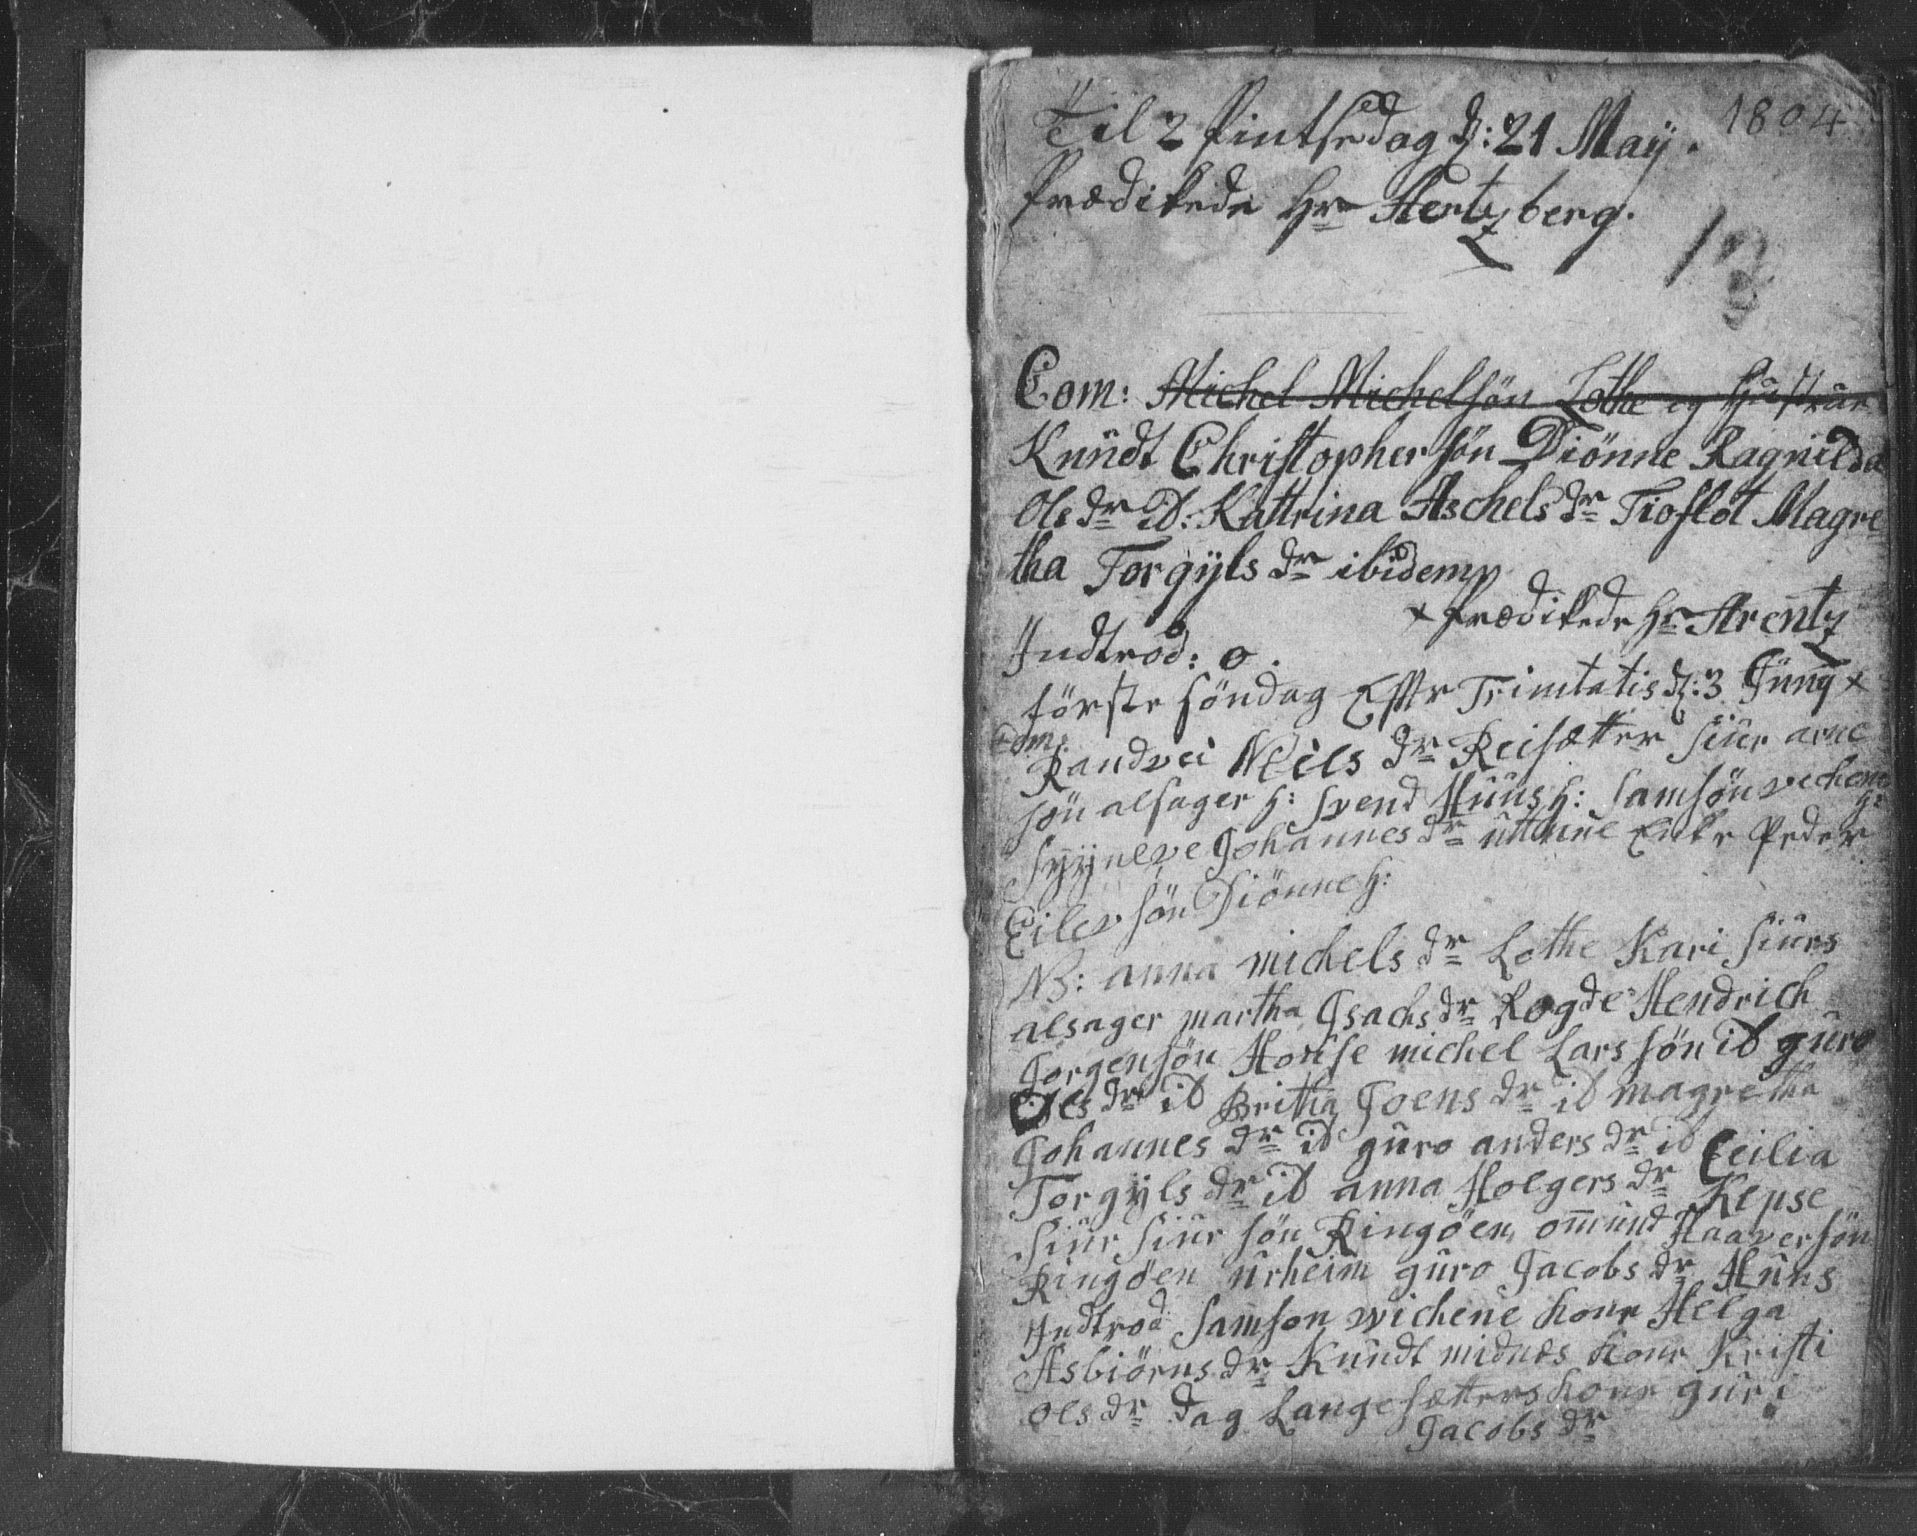 Til 2 Pintsedag d: 21 Maÿ. 1804
Prædikede Hr Hertzberg.
Com: Michel Michelsøn Lothe og Hustrue
Knudt Christophersøn Diønne Ragnilda
Ols dr ib: Kattrina Aschels dr Tioflot Magre
tha Torgÿls dr ibidem
x Prædikede Hr Arentz
Indtrod: 0.
første søndag Efftr Trinitatis d: 3 Junÿ x
Com:
Randvei Neils dr Reisætter siur arne
søn alsager h: svend Huus h: samsøn vechene
h:
syyneve Johannes dr uttnne Enke Peder
Eilevsøn Diønne h:
NB: anna michels dr Lothe Kari siurs
alsager martha Isachs dr Rogde Hendrich
Jorgensøn House michel Larssøn ib guro
Oles dr ib Britha Joens dr ib magretha
Johannes dr ib guro anders dr ib Ceilia
Torgÿls dr ib anna Holgers dr Kepse
siur siursøn Ringøen omund Haaversøn
Ringøen urheim guro Jacobs dr Huus
Indtrod samson wichene kone Helga
Asbiørns dr Knudt midnes kone Kristi
ols dr dag Langesætters kone guri
Jacobs dr